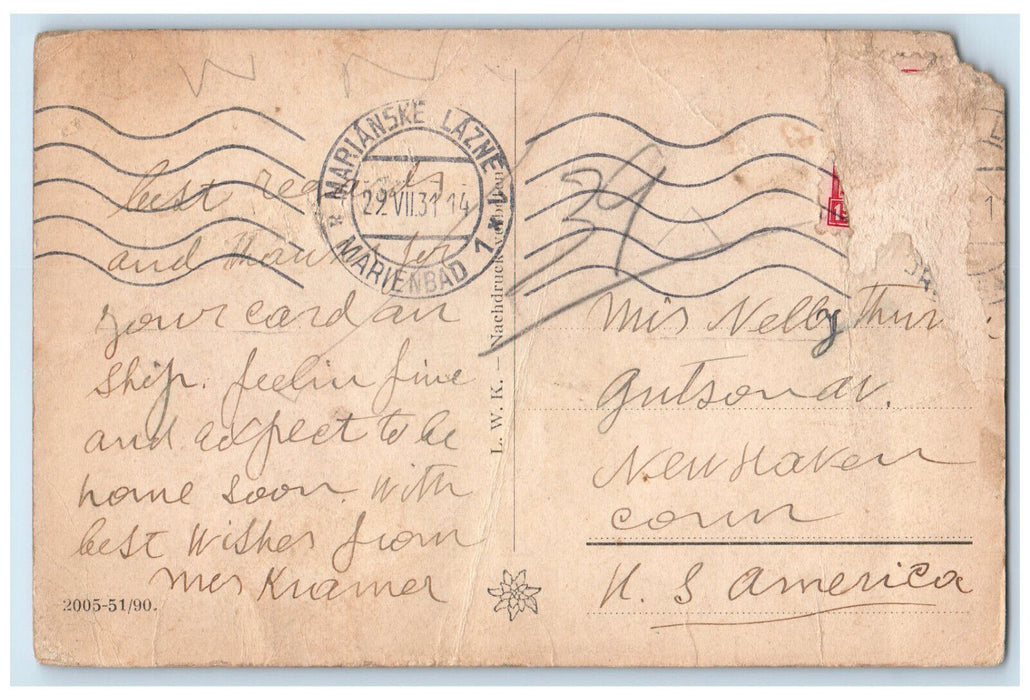 MARIÁNSKÉ LÁZNĚ 1
29.VII.31 14
MARIENBAD 1
39
best regards
and thanks for
your card an
ship. feelin fine
and axpect to be
home soon. With
best Wishes from
Mrs Kramer
2005-51/90.
L. W. K. — Nachdruck verboten
Mis Nelly Thur
New Haven
conn
U. S America